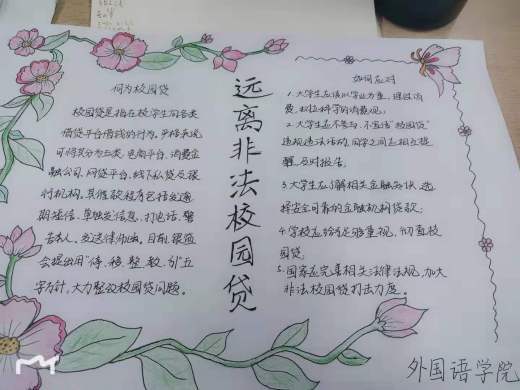 何为校园贷
校园贷是指在校学生向各类
借贷平台借钱的行为。严格来说
可将其分为五类，电商平台、消费金
融公司、网贷平台、线下私贷及银
行机构。其催款程序包括发通
期短信、单独发信息、打电话、警
告本人、发送律师函。目前，银监
会提出用"停、移、整、教、引"五
字方针，大力整改校园贷问题。
远离非法校园贷
如何应对
1.大学生应该以学业为重，理性消
费，树立科学的消费观；
2.大学生应不参与、不宣传"校园贷"
违规违法活动，同学之间互相提
醒，及时报告。
3.大学生应了解相关金融知识，选
择安全可靠的金融机构贷款；
4.学校应给予足够重视，彻查校
园贷。
5.国家应完善相关法律法规，加大
非法校园贷打击力度。
外国语学院